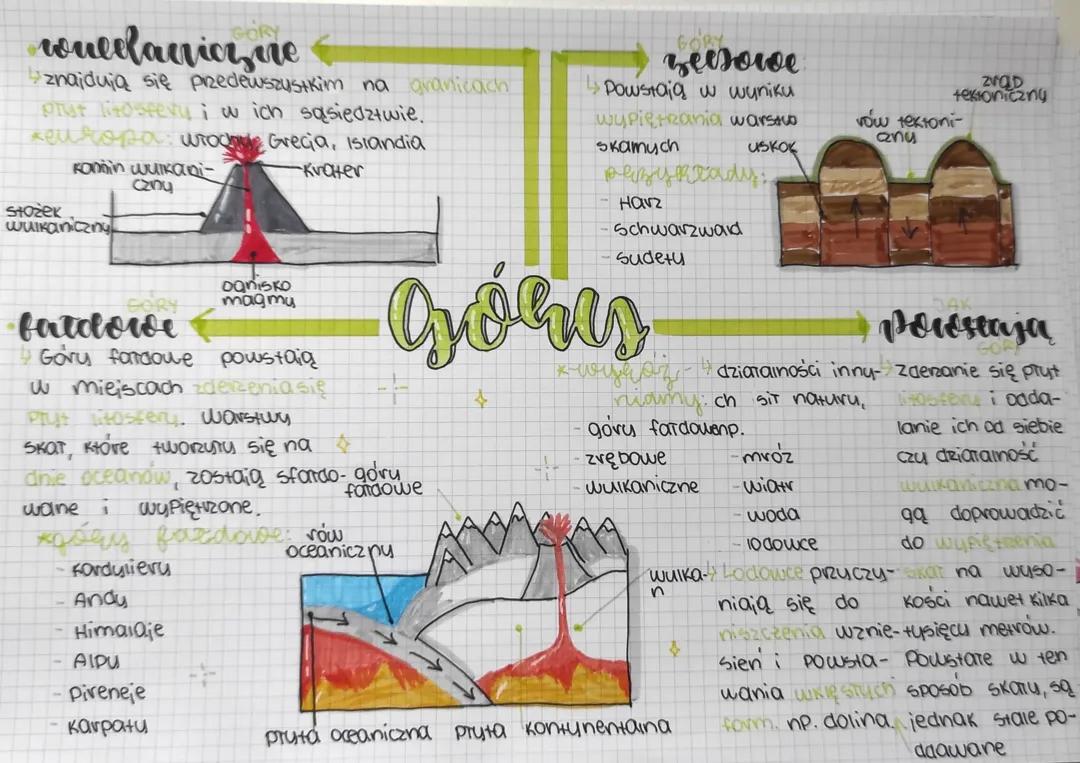 GÓRY
wulkaniczne
↳ znajdują się przedewszystkim na granicach
płyt litosfery i w ich sąsiedztwie.
*europa: włochy, Grecja, Islandia
komin wulkani-
czny
krater
stożek
wulkaniczny
ognisko
magmy
GÓRY
zrębowe
↳ Powstają w wyniku
wypiętrzania warstw
skalnych
przykłady:
- Harz
- Schwarzwald
- Sudety
uskok
rów tektoni-
czny
zrąb
tektoniczny
GÓRY
GÓRY
fałdowe
↳ Góry fałdowe powstają
w miejscach zderzenia się
płyt litosfery. Warstwy
skał, które tworzyły się na
dnie oceanów, zostają sfałdo-
wane i wypiętrzone.
*góry fałdowe:
- Kordyliery
- Andy
- Himalaje
- Alpy
- Pireneje
- Karpaty
góry
fałdowe
rów
oceaniczny
wulka-
n
płyta oceaniczna płyta kontynentalna
*wyróż-
niamy:
- góry fałdowe
- zrębowe
- wulkaniczne
↳ działalności inny-
ch sił natury,
np.
- mróz
- wiatr
- woda
- lodowce
↳ Lodowce przyczy-
niają się do
niszczenia wznie-
sień i powsta-
wania wklęsłych
form. np. dolina.
JAK
Powstają
GÓRY
↳ Zderzanie się płyt
litosfery i odda-
lanie ich od siebie
czy działalność
wulkaniczna mo-
gą doprowadzić
do wypiętrzenia
skał na wyso-
kości nawet kilka
tysięcy metrów.
Powstałe w ten
sposób skały, są
jednak stale po-
ddawane